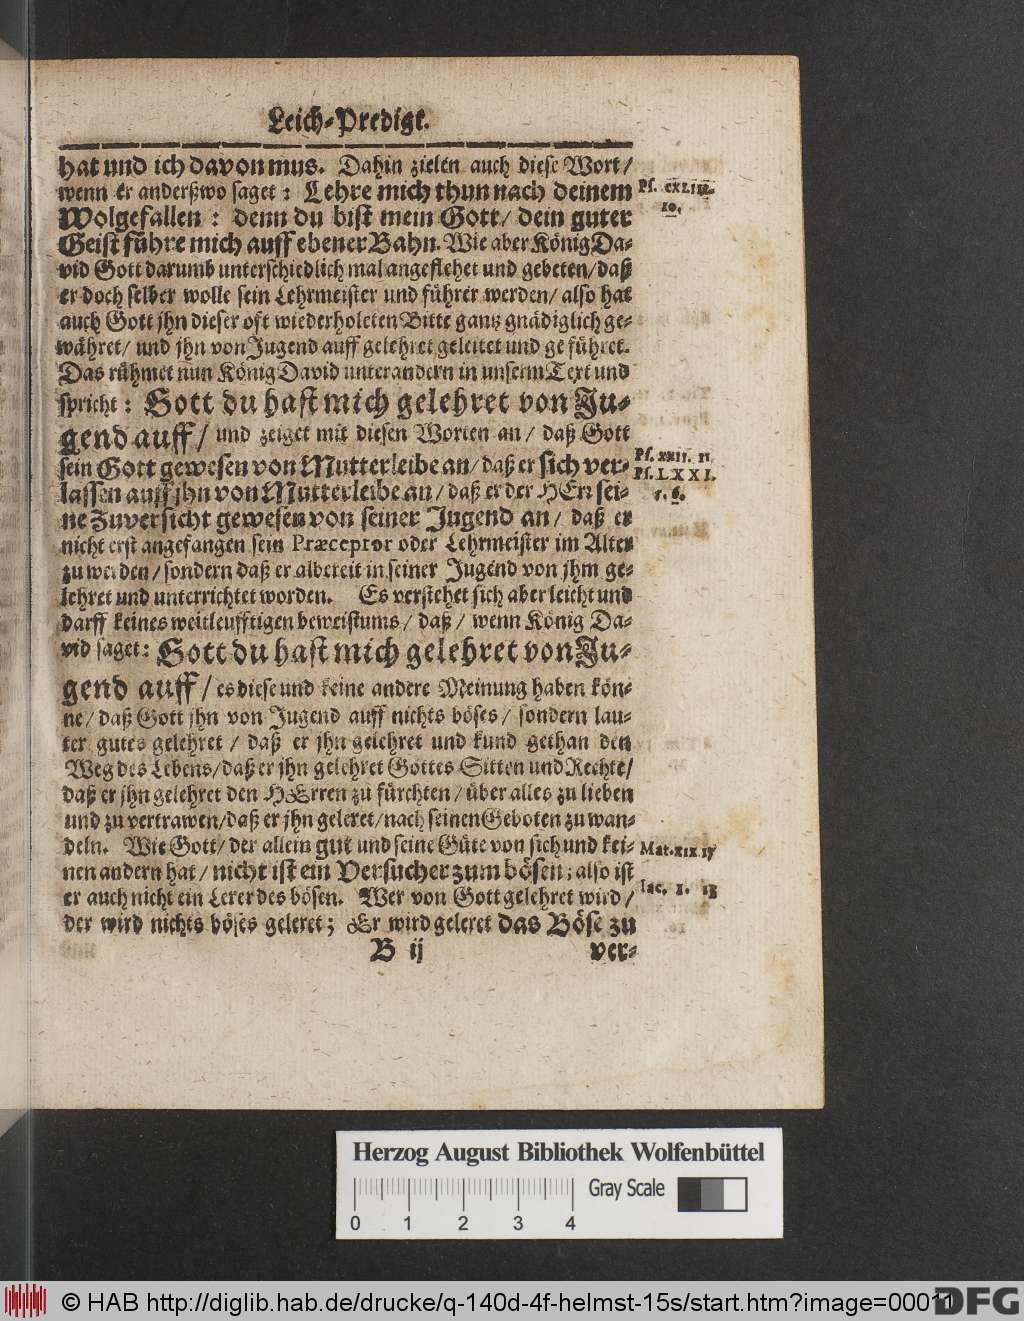 Leich-Predigt.
hat und ich davon mus. Dahin zielen auch diese Wort/
wenn er anderßwo saget: Lehre mich thun nach deinem
Wolgefallen: denn du bist mein Gott/ dein guter
Geist führe mich auff ebener Bahn. Wie aber König Da-
vid Gott darumb unterschiedlich mal angeflehet und gebeten/ daß
er doch selber wolle sein Lehrmeister und führer werden/ also hat
auch Gott jhn dieser oft wiederholeten Bitte gantz gnädiglich ge-
währet/ und jhn von Jugend auff gelehret geleitet und geführet.
Das rühmet nun König David unter andern in unserm Text und
spricht: Gott du hast mich gelehret von Ju-
gend auff/ und zeiget mit diesen Worten an/ daß Gott
sein Gott gewesen von Mutterleibe an/ daß er sich ver-
lassen auff jhn von Mutterleibe an/ daß er der HErr sei-
ne Zuversicht gewesen von seiner Jugend an/ daß er
nicht erst angefangen sein Præceptor oder Lehrmeister im Alter
zu werden/ sondern daß er albereit in seiner Jugend von jhm ge-
lehret und unterrichtet worden. Es verstehet sich aber leicht und
darff keines weitleufftigen beweistums/ daß/ wenn König Da-
vid saget: Gott du hast mich gelehret von Ju-
gend auff/ es diese und keine andere Meinung haben kön-
ne/ daß Gott jhn von Jugend auff nichts böses/ sondern lau-
ter gutes gelehret/ daß er jhn gelehret und kund gethan den
Weg des Lebens/ daß er jhn gelehret Gottes Sitten und Rechte/
daß er jhn gelehret den HErren zu fürchten/ über alles zu lieben
und zu vertrawen/ daß er jhn geleret/ nach seinen Geboten zu wan-
deln. Wie Gott/ der allein gut und seine Güte von sich und kei-
nen andern hat/ nicht ist ein Versucher zum bösen; also ist
er auch nicht ein Lerer des bösen. Wer von Gott gelehret wird/
der wird nichts böses geleret; Er wird geleret das Böse zu
B ij ver-
Ps. CXLIII.
10.
Ps. XXII. 11.
Ps. LXXI.
5. 6.
Mat. XIX 17
Iac. 1. 13
Herzog August Bibliothek Wolfenbüttel
Gray Scale
0 1 2 3 4
© HAB http://diglib.hab.de/drucke/q-140d-4f-helmst-15s/start.htm?image=00011
DFG